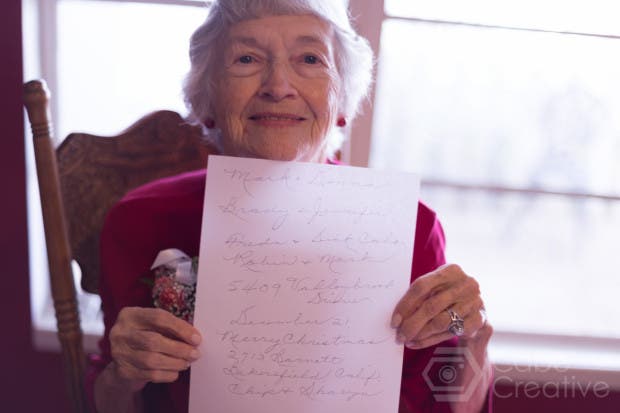 Mark & Donna
Brady & Jennifer
Freda & Dick Cabe
Robin & Mark
5409
Drive
December 21
Merry Christmas
2713 Barnett
Bakersfield Calif.
Chip & Sharyn
Cabe
Creative